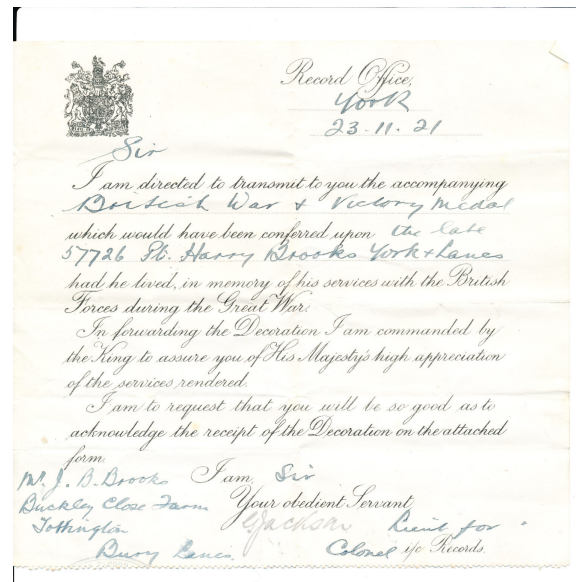 Record Office,
York
23.11.21
Sir
I am directed to transmit to you the accompanying
British War & Victory Medal
which would have been conferred upon the late
57726 Pt. Harry Brooks York & Lancs
had he lived, in memory of his services with the British
Forces during the Great War.
In forwarding the Decoration I am commanded by
the King to assure you of His Majesty's high appreciation
of the services rendered.
I am to request that you will be so good as to
acknowledge the receipt of the Decoration on the attached
form.
I am, Sir
Your obedient Servant,
G Jackson Lieut for
Colonel i/c Records.
Mr. J. B. Brooks
Buckley Close Farm
Tottington
Bury Lancs.